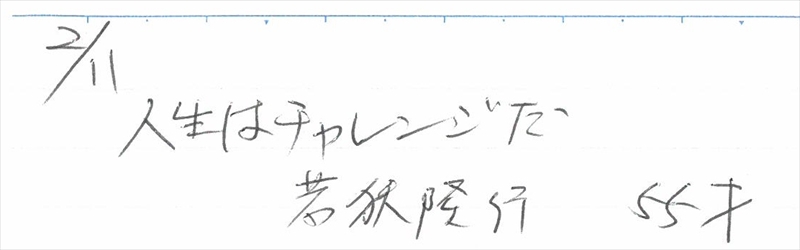 2/11
人生はチャレンジだ
若狭隆行 55才